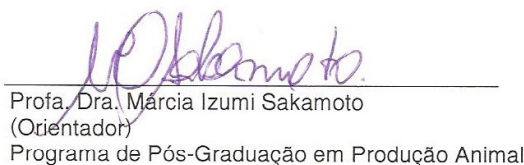 MISakamoto.
Profa. Dra. Márcia Izumi Sakamoto
(Orientador)
Programa de Pós-Graduação em Produção Animal